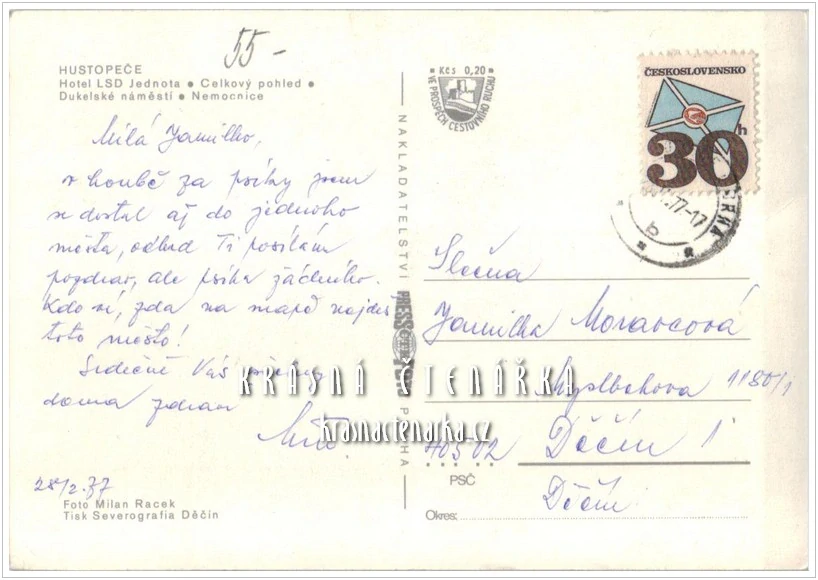 55-
HUSTOPEČE
Hotel LSD Jednota • Celkový pohled •
Dukelské náměstí • Nemocnice
Milá Jamilko,
v honbě za psíky jsem
se dostal až do jednoho
města, odkud Ti posílám
pozdrav, ale psíka žádného.
Kdo ví, zda na mapě najdeš
toto město!
Srdečně Vás všechny
doma zdraví
28/2.77
Foto Milan Racek
Tisk Severografia Děčín
NAKLADATELSTVÍ PRESSFOTO PRAHA
Kčs 0,20
VE PROSPĚCH CESTOVNÍHO RUCHU
ČESKOSLOVENSKO
30h
.77-17
b
Slečna
Jamilka Moravcová
Myslbekova 1180/1
405 02 Děčín 1
PSČ
Děčín
Okres:
KRÁSNÁ ČTENÁŘKA
krasnactenarka.cz